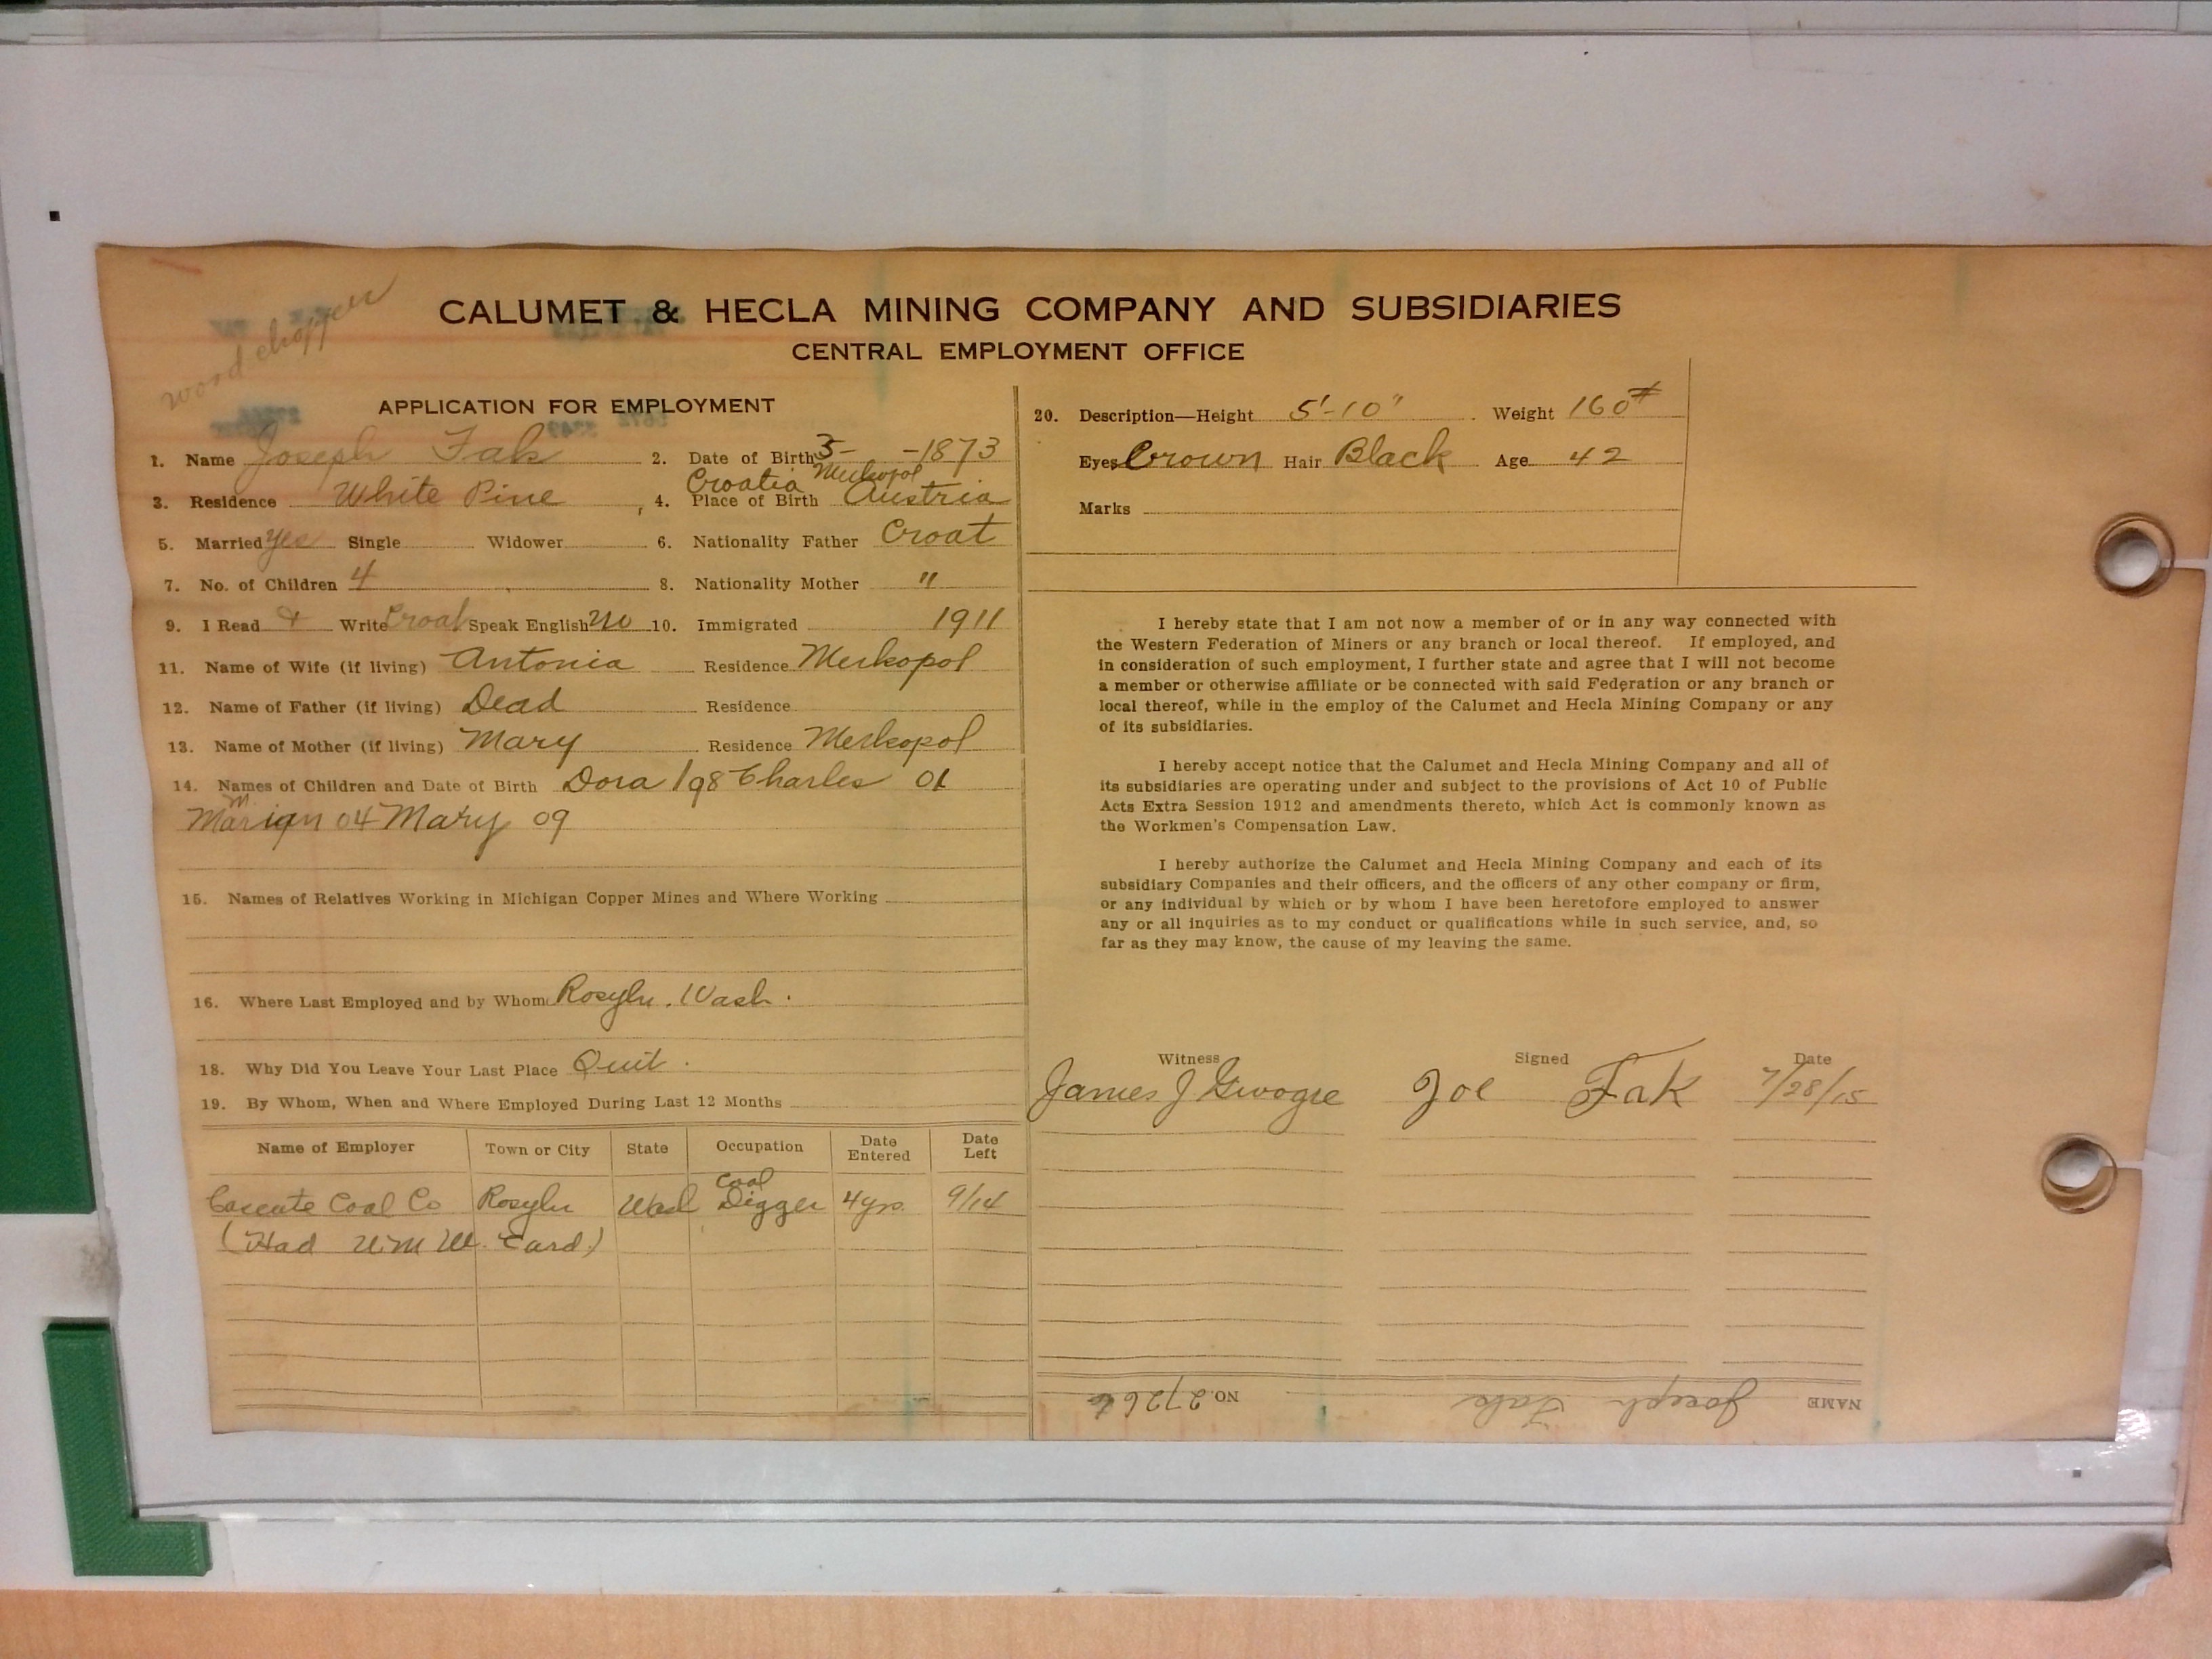 wood chopper
CALUMET & HECLA MINING COMPANY AND SUBSIDIARIES
CENTRAL EMPLOYMENT OFFICE
APPLICATION FOR EMPLOYMENT
1. Name Joseph Fak 2. Date of Birth 3- -1873
Croatia Merkopol
3. Residence White Pine, 4. Place of Birth Austria
5. Married Yes Single Widower 6. Nationality Father Croat
7. No. of Children 4 8. Nationality Mother "
9. I Read & Write Croat Speak English No 10. Immigrated 1911
11. Name of Wife (if living) Antonia Residence Merkopol
12. Name of Father (if living) Dead Residence
13. Name of Mother (if living) Mary Residence Merkopol
14. Names of Children and Date of Birth Dora 198 Charles 01
M.
Marian 04 Mary 09
15. Names of Relatives Working in Michigan Copper Mines and Where Working
16. Where Last Employed and by Whom Roseyln, Wash.
18. Why Did You Leave Your Last Place Quit.
19. By Whom, When and Where Employed During Last 12 Months
Name of Employer Town or City State Occupation Date Entered Date Left
Coal
Coal Co Roseyln Wash Digger 4 yrs. 9/14
(Had U.M.W. Card)
20. Description—Height 5'-10" Weight 160#
Eyes Brown Hair Black Age 42
Marks
I hereby state that I am not now a member of or in any way connected with
the Western Federation of Miners or any branch or local thereof. If employed, and
in consideration of such employment, I further state and agree that I will not become
a member or otherwise affiliate or be connected with said Federation or any branch or
local thereof, while in the employ of the Calumet and Hecla Mining Company or any
of its subsidiaries.
I hereby accept notice that the Calumet and Hecla Mining Company and all of
its subsidiaries are operating under and subject to the provisions of Act 10 of Public
Acts Extra Session 1912 and amendments thereto, which Act is commonly known as
the Workmen's Compensation Law.
I hereby authorize the Calumet and Hecla Mining Company and each of its
subsidiary Companies and their officers, and the officers of any other company or firm,
or any individual by which or by whom I have been heretofore employed to answer
any or all inquiries as to my conduct or qualifications while in such service, and, so
far as they may know, the cause of my leaving the same.
Witness Signed Date
James J Joe Fak 7/28/15
NAME Joseph Fak NO. 27266